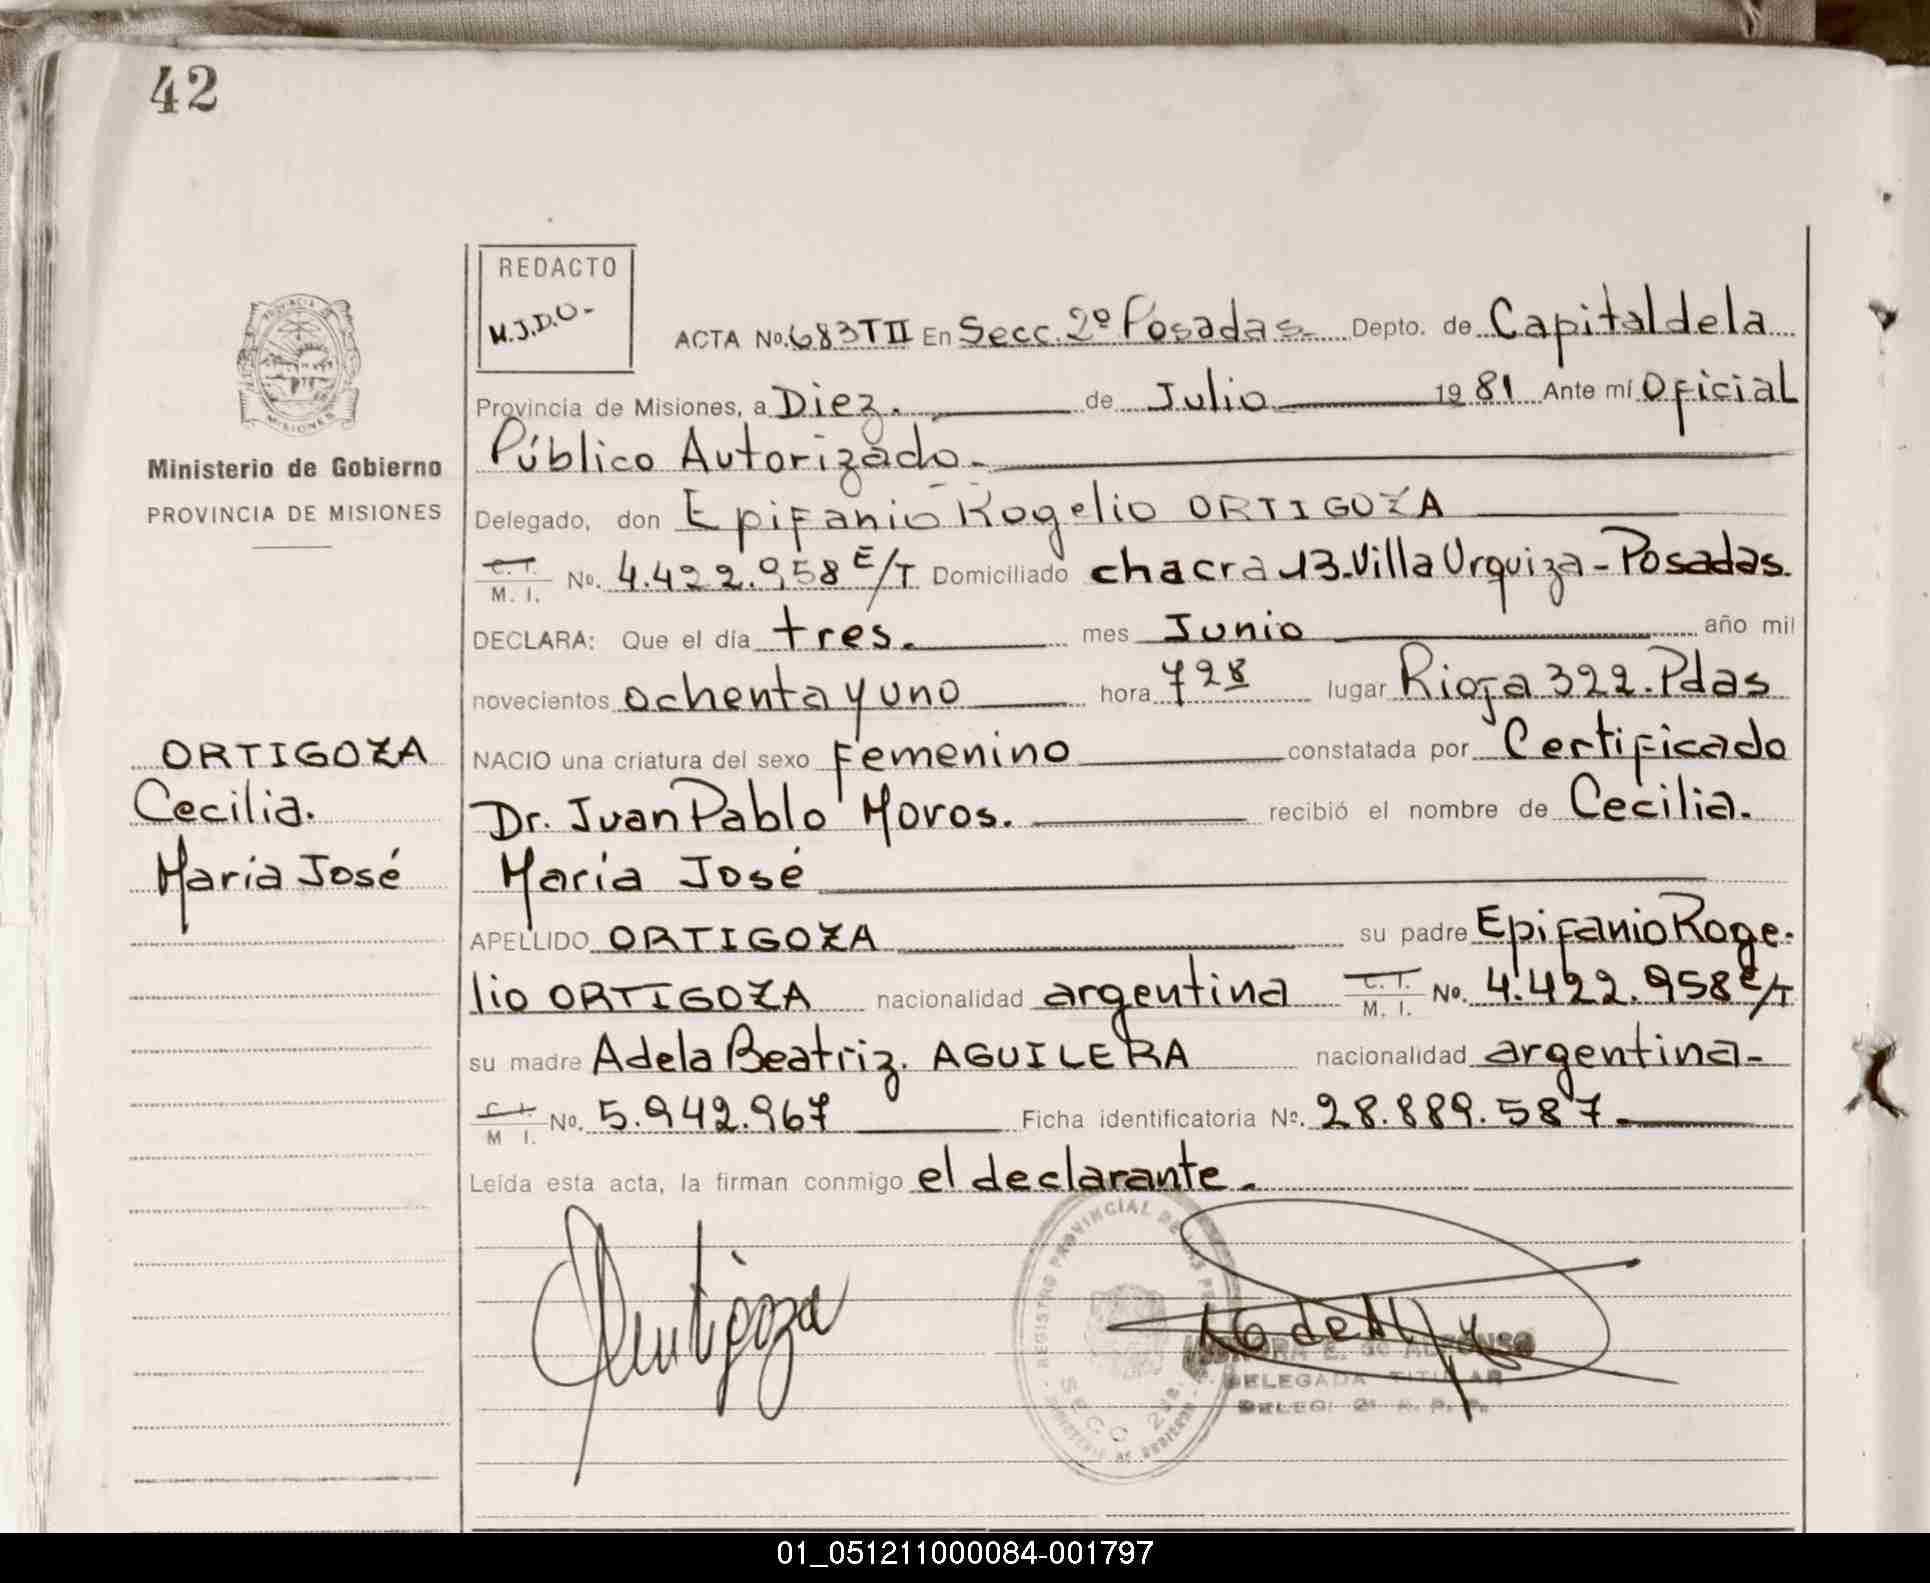 42
REDACTO
M.J.D.O-
ACTA No. 683 T II En Secc. 2º Posadas. Depto. de Capital de la
Provincia de Misiones, a Diez. de Julio 1981 Ante mí Oficial
Público Autorizado.
Ministerio de Gobierno
PROVINCIA DE MISIONES
Delegado, don Epifanio Rogelio ORTIGOZA
C. I. M. I. No. 4.422.958 E/T Domiciliado chacra 13. Villa Urquiza - Posadas.
DECLARA: Que el día tres. mes Junio año mil
novecientos ochenta y uno hora 7 28 lugar Rioja 322. Pdas
NACIO una criatura del sexo Femenino constatada por Certificado
Dr. Juan Pablo Moros. recibió el nombre de Cecilia.
María José
ORTIGOZA
Cecilia.
María José
APELLIDO ORTIGOZA su padre Epifanio Roge-
lio ORTIGOZA nacionalidad argentina C. I. M. I. No. 4.422.958 E/T
su madre Adela Beatriz. AGUILERA nacionalidad argentina-
C. I. M I. No. 5.942.967 Ficha identificatoria Nº. 28.889.587.
Leída esta acta, la firman conmigo el declarante.
REGISTRO PROVINCIAL DE LAS
SECC 2da.
MINISTERIO DE GOBIERNO
E. de ALFONSO
DELEGADA TITULAR
DELEG. 2ª R. P. P.
01_051211000084-001797